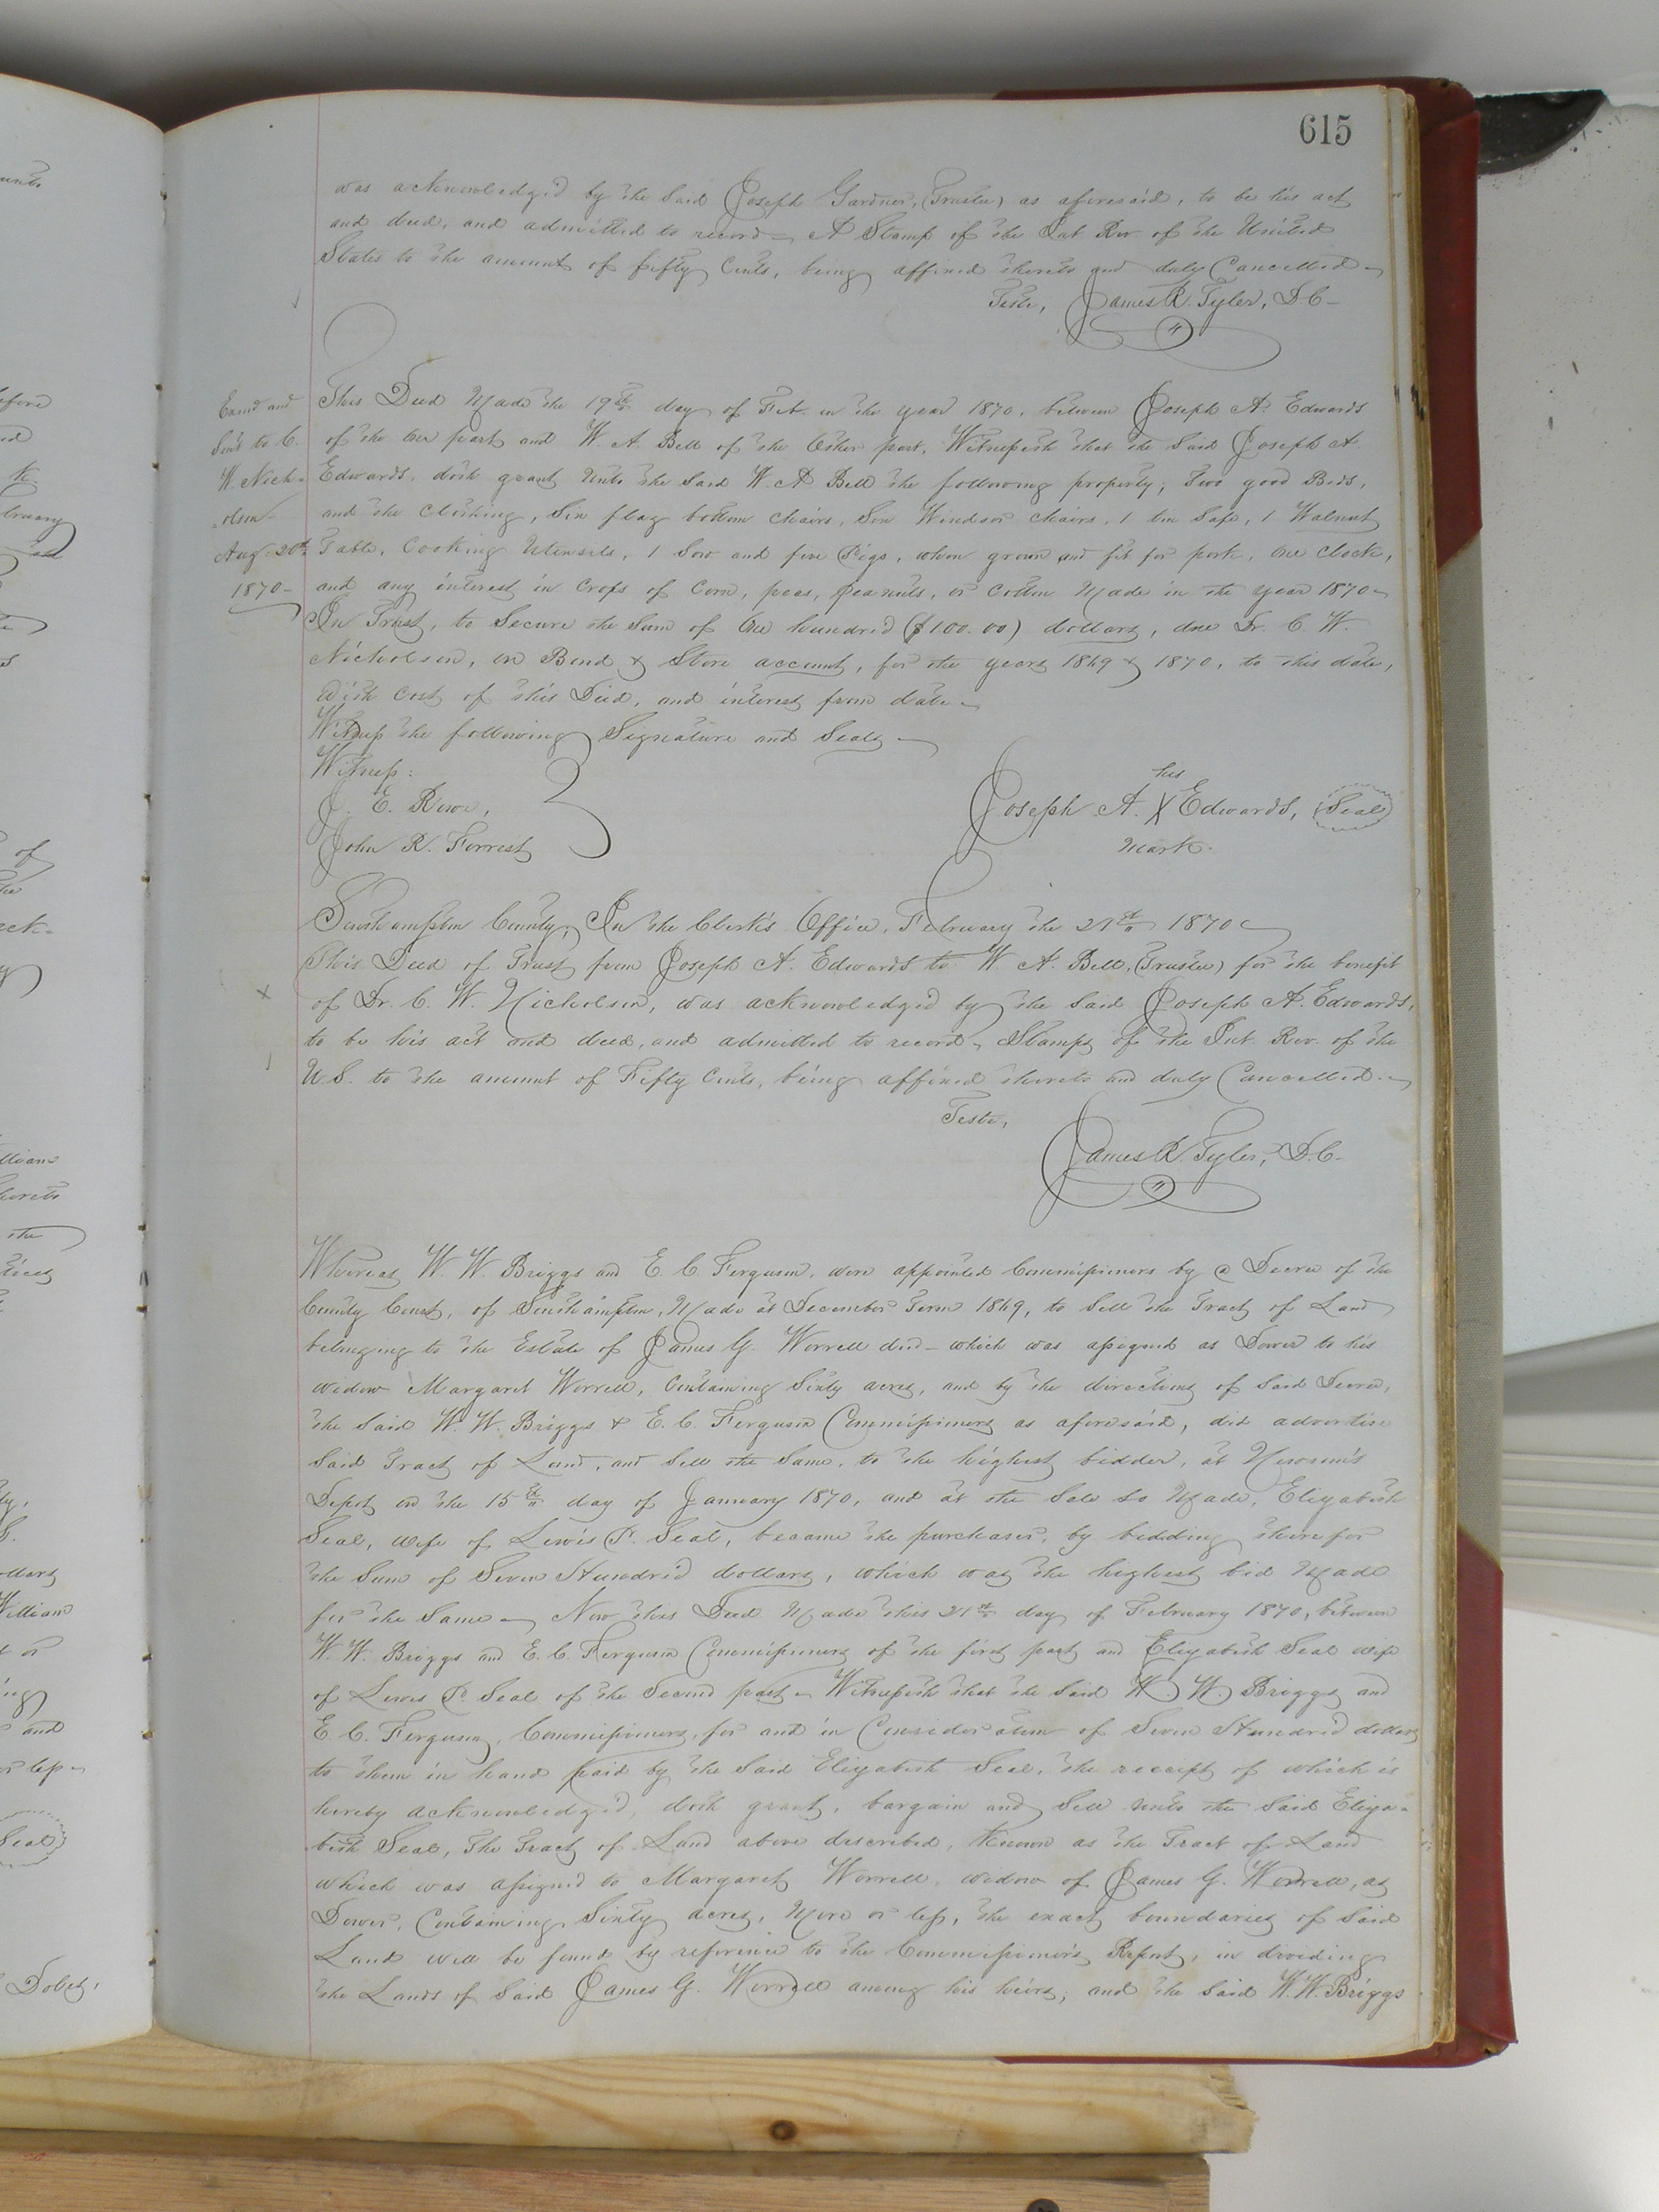 615
was acknowledged by the said Joseph Gardner, (Trustee) as aforesaid, to be his act
and deed, and admitted to record - A Stamp of the Int Rev. of the United
States to the amount of fifty Cents, being affixed thereto and duly Cancelled -
Teste, James R. Tyler, D.C -
Exam'd and
Sent to C.
W. Nich-
-olson -
Aug. 20th
1870 -
This Deed Made the 19th day of Feb. in the year 1870, between Joseph A. Edwards
of the One part and W. A. Bell of the Other part, Witnesseth that the said Joseph A.
Edwards, doth grant Unto the said W. A Bell the following property; Two good Beds,
and the Clothing, Six flag bottom Chairs, Six Windsor Chairs, 1 tin Safe, 1 Walnut
Table, Cooking Utensils, 1 Sow and five Pigs, when grown and fit for pork, One Clock,
and any interest in Crops of Corn, peas, peanuts, or Cotton Made in the year 1870 -
In Trust, to Secure the Sum of One hundred ($100.00) dollars, due Dr. C. W.
Nicholson, on Bond & Store account, for the years 1869 & 1870, to this date,
With Cost of this Deed, and interest from date -
Witness the following Signature and Seals -
Witness:
J. E. Rowe,
John R. Forrest
his
Joseph A. X Edwards, (Seal)
mark.
Southampton County, In the Clerk's Office, February the 21st 1870 -
This Deed of Trust from Joseph A. Edwards to W. A. Bell, (Trustee) for the benefit
of Dr. C. W. Nicholson, was acknowledged by the said Joseph A. Edwards,
to be his act and deed, and admitted to record - Stamps of the Int. Rev. of the
U.S. to the amount of Fifty Cents, being affixed thereto and duly Cancelled. -
Teste,
James R. Tyler, D.C -
Whereas W. W. Briggs and E. C. Ferguson, were appointed Commissioners by a Decree of the
County Court, of Southampton, Made at December Term 1869, to Sell the Tract of Land
belonging to the Estate of James G. Worrell dec'd - which was assigned as Dower to his
widow Margaret Worrell, Containing Sixty acres, and by the directions of said Decree,
the said W. W. Briggs & E. C. Ferguson Commissioners as aforesaid, did advertise
said Tract of Land, and Sell the Same, to the highest bidder, at Newsom's
Depot on the 15th day of January 1870, and at the Sale so Made, Elizabeth
Seal, wife of Lewis P. Seal, became the purchaser, by bidding therefor
the Sum of Seven Hundred dollars, which was the highest bid Made
for the Same - Now this Deed Made this 21st day of February 1870, between
W. W. Briggs and E. C. Ferguson Commissioners of the first part and Elizabeth Seal wife
of Lewis P. Seal of the Second part - Witnesseth that the said W. W. Briggs and
E. C. Ferguson, Commissioners, for and in Consideration of Seven Hundred dollars
to them in hand paid by the said Elizabeth Seal, the receipt of which is
hereby acknowledged, doth grant, bargain and Sell unto the said Eliza-
beth Seal, The Tract of Land above described, Known as the Tract of Land
which was assigned to Margaret Worrell, widow of James G. Worrell, as
Dower, Containing Sixty acres, More or less, the exact boundaries of said
Land will be found by reference to the Commissioners Report, in dividing
the Lands of said James G. Worrell among his heirs, and the said W. W. Briggs